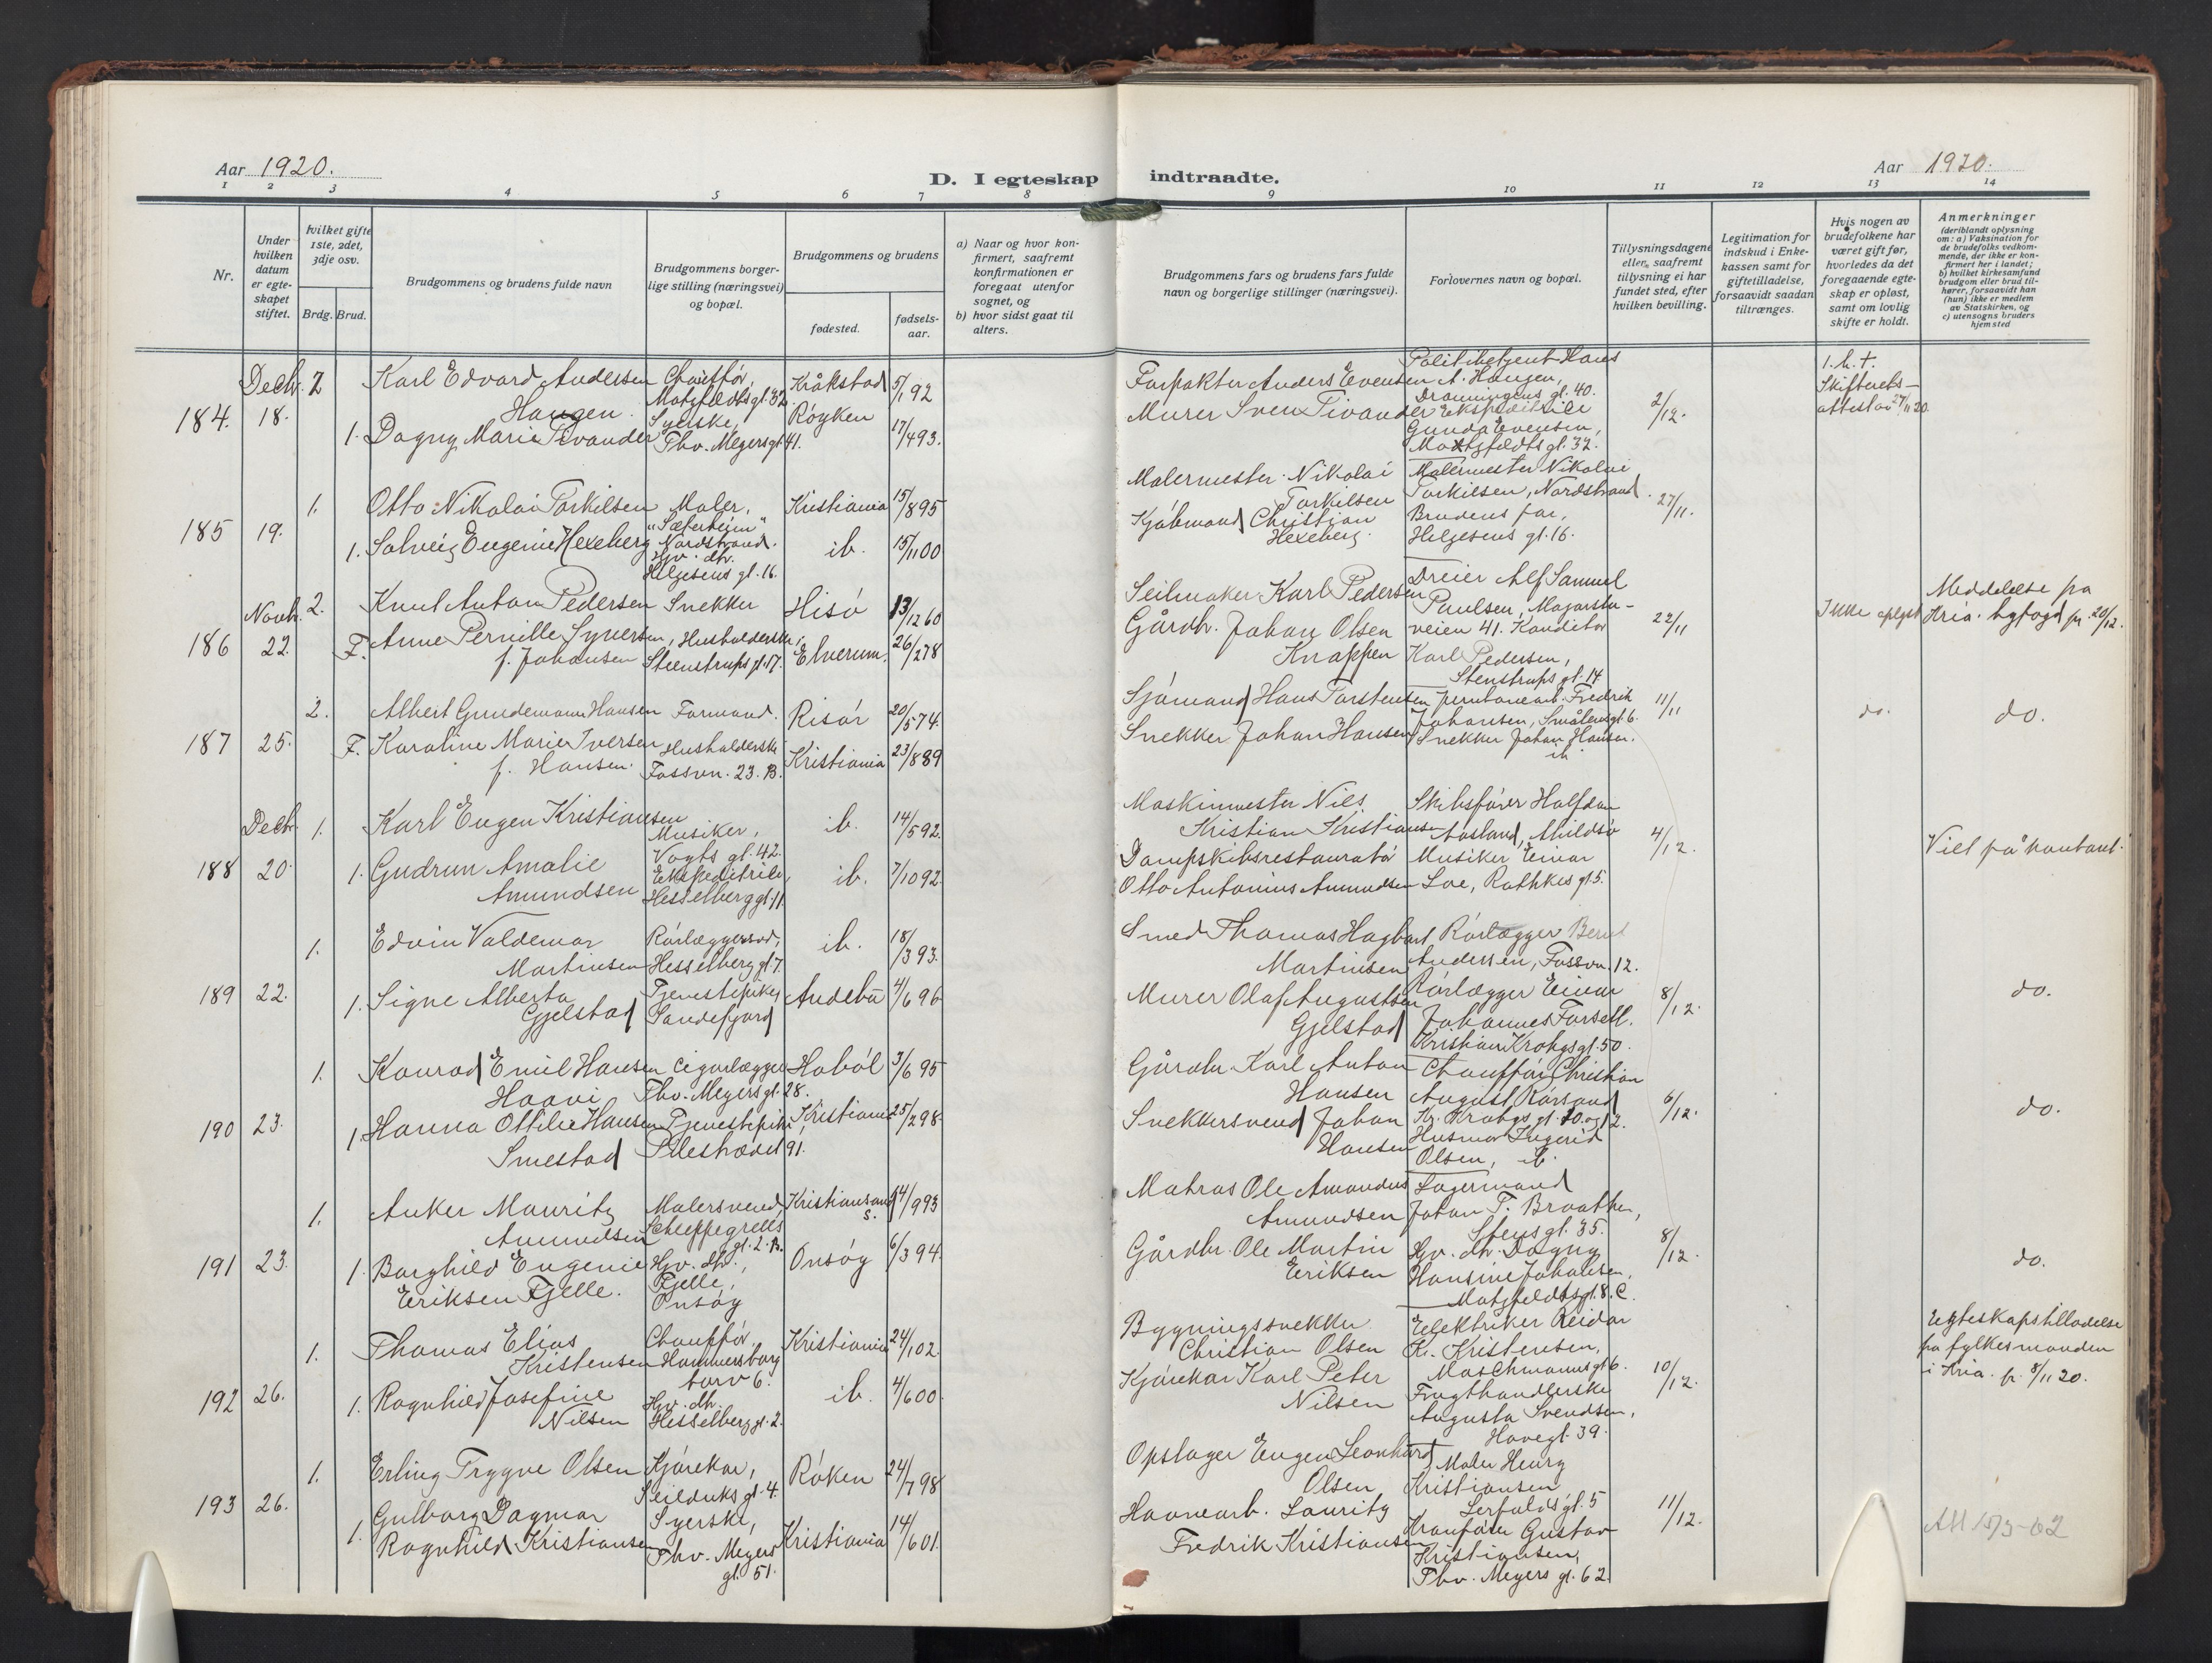 Aar 1920.
D. I egteskap indtraadte.
Aar 1920.
1 2 3 4 5 6 7 8 9 10 11 12 13 14
Nr.
Under hvilken datum er egteskapet stiftet.
hvilket gifte 1ste, 2det, 3dje osv.
Brdg. Brud.
Brudgommens og brudens fulde navn
Brudgommens borgerlige stilling (næringsvei) og bopæl.
Brudgommens og brudens
fødested.
fødselsaar.
a) Naar og hvor konfirmert, saafremt konfirmationen er foregaat utenfor sognet, og
b) hvor sidst gaat til alters.
Brudgommens fars og brudens fars fulde navn og borgerlige stillinger (næringsvei).
Forlovernes navn og bopæl.
Tillysningsdagene eller, saafremt tillysning ei har fundet sted, efter hvilken bevilling.
Legitimation for indskud i Enkekassen samt for giftetilladelse, forsaavidt saadan tiltrænges.
Hvis nogen av brudefolkene har været gift før, hvorledes da det foregaaende egteskap er opløst, samt om lovlig skifte er holdt.
Anmerkninger
(deriblandt oplysning om: a) Vaksination for de brudefolks vedkommende, der ikke er konfirmert her i landet;
b) hvilket kirkesamfund brudgom eller brud tilhører, forsaavidt han (hun) ikke er medlem av Statskirken, og
c) utensogns bruders hjemsted
184. Decbr. 18. 2
Karl Edvard Andersen Haugen.
Chauffør, Motzfeldts gt. 32.
Kråkstad 5/1 92
Forpakter Anders Evensen
Politibetjent Hans A. Haugen, Dronningens gt. 40.
2/12.
Skifterets-attest av 27/11 20.
1. Dagny Marie Tivander
Syerske, Thv. Meyersgt. 41.
Røyken 17/4 93.
Murer Sven Tivander
Ekspeditrice Gunda Evensen, Motzfeldts gt. 32.
185 19. 1.
Otto Nikolai Torkilsen
Maler, "Sæterheim" Nordstrand.
Kristiania 15/8 95
Malermester Nikolai Torkilsen
Malermester Nikolai Torkilsen, Nordstrand.
27/11.
1. Solveig Eugenie Hexeberg
Hjv. dtr. Helgesens gt. 16.
ib. 15/11 00
Kjøbmand Christian Hexeberg.
Brudens far, Helgesens gt. 16.
186 Novbr. 22. 2.
Knut Anton Pedersen
Snekker
Hisø 13/12 60
Seilmaker Karl Pedersen
Dreier Alf Samuel Paulsen, Majorstuveien 41.
22/11
Ikke oplyst
Meddelelse fra Kria. byfogd fr. 20/12.
F. Anne Pernille Syversen, f. Johansen
Husholderske, Steenstrups gt. 17.
Elverum. 26/2 78
Gårdbr. Johan Olsen Knappen
Konditor Karl Pedersen, Stenstrups gt. 14
187 25. 2.
Albert Gundemann Hansen
Formand.
Risør 20/5 74.
Sjømand Hans Torstensen
Jernbanearb. Fredrik Johansen, Smålensgt. 6.
11/11
do.
do.
F. Karoline Marie Iversen f. Hansen.
Husholderske Fossvn. 23. B.
Kristiania 23/8 89
Snekker Johan Hansen
Snekker Johan Hansen. ib
188 Decbr. 20. 1.
Karl Eugen Kristiansen
Musiker, Vogts gt. 42.
ib. 14/5 92.
Maskinmester Nils Kristian Kristiansen
Skibsfører Halfdan Aasland, Abildsø
4/12.
Viet på kontoret.
1. Gudrun Amalie Amundsen
Ekspeditrice, Hesselberg gt. 11.
ib. 7/10 92.
Dampskibsrestauratør Otto Antonius Amundsen
Musiker Einar Loe, Rathkes gt. 5.
189 22. 1.
Edvin Valdemar Martinsen
Rørlæggersvd., Hesselberg gt. 7.
ib. 18/3 93.
Smed Thomas Hagbart Martinsen
Rørlægger Bernt Andersen, Fossvn. 12.
8/12.
do.
1. Signe Alberta Gjelstad
Tjenestepike, Sandefjord
Andebu 4/6 96
Murer Olaf Augustsen Gjelstad
Rørlægger Einar Johannes Forsell. Kristian Krohgs gt. 50.
190 23. 1.
Konrad Emil Hansen Haavi
Cigarlægger Thv. Meyers gt. 28.
Hobøl 3/6 95
Gårdbr. Karl Anton Hansen
Chauffør Christian August Rørsand Kr. Krohgs gt. 10 og 12.
6/12.
do.
1. Hanna Ottilie Hansen Smestad
Tjenestepike, Pilestrædet 91.
Kristiania 25/2 98.
Snekkersvend Johan Hansen
Husmor Ingerid Olsen, ib.
191 23. 1.
Anker Mauritz Amundsen
Malersvend, Schleppegrells gt. 2. B.
Kristiansand S. 14/9 93
Matros Ole Amandus Amundsen
Lagermand Johan T. Braathen, Stens gt. 35.
8/12.
do.
1. Borghild Eugenie Eriksen Fjelle.
Hjv. dtr., Fjelle, Onsøy
Onsøy 6/3 94.
Gårdbr. Ole Martin Eriksen
Hjv. dtr. Dagny Hansine Johansen, Motzfeldts gt. 8. C.
192 26. 1.
Thomas Elias Kristensen
Chauffør, Hammersborg torv 6.
Kristiania 24/1 02.
Bygningssnekker Christian Olsen
Elektriker Reidar Kr. Kristensen, Maschmanns gt 6.
10/12.
Egteskapstilladelse fra fylkesmanden i Kria. fr. 8/11 20.
1. Ragnhild Josefine Nilsen
Hjv. dtr. Hesselberg gt. 2.
ib. 4/6 00.
Kjørekar Karl Peter Nilsen
Frugthandlerske Augusta Svendsen, Havegt. 39.
193 26. 1.
Erling Trygve Olsen
Kjørekar, Seilduks gt. 4.
Røken 24/7 98
Opslager Eugen Leonhard Olsen
Maler Henry Kristiansen Lerfalds gt. 5
11/12.
1. Gulborg Dagmar Ragnhild Kristiansen
Syerske, Thv. Meyers gt. 51.
Kristiania 14/6 01.
Havnearb. Lauritz Fredrik Kristiansen
Kranfører Gustav Kristiansen, Thv. Meyers gt. 62.